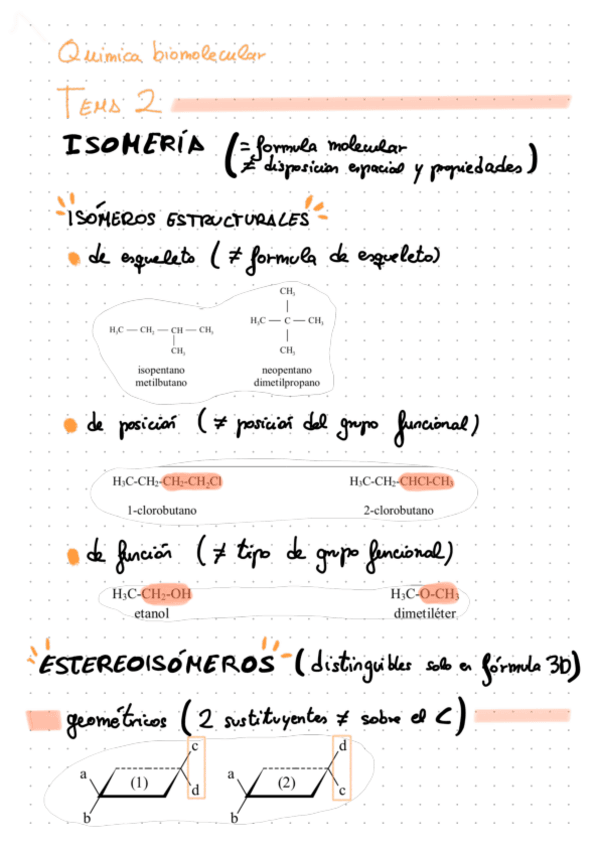 Química biomolecular
TEMA 2
ISOMERÍA (= formula molecular
≠ disposicion espacial y propiedades)
ISÓMEROS ESTRUCTURALES
de esqueleto (≠ formula de esqueleto)
CH₃
H₃C — CH₂ — CH — CH₃
H₃C — C — CH₃
CH₃
CH₃
isopentano
neopentano
metilbutano
dimetilpropano
de posición (≠ posición del grupo funcional)
H₃C-CH₂-CH₂-CH₂Cl
H₃C-CH₂-CHCl-CH₃
1-clorobutano
2-clorobutano
de función (≠ tipo de grupo funcional)
H₃C-CH₂-OH
H₃C-O-CH₃
etanol
dimetiléter
ESTEREOISÓMEROS (distinguibles solo en fórmula 3D)
geométricos (2 sustituyentes ≠ sobre el C)
c
d
a
(1)
a
(2)
d
c
b
b